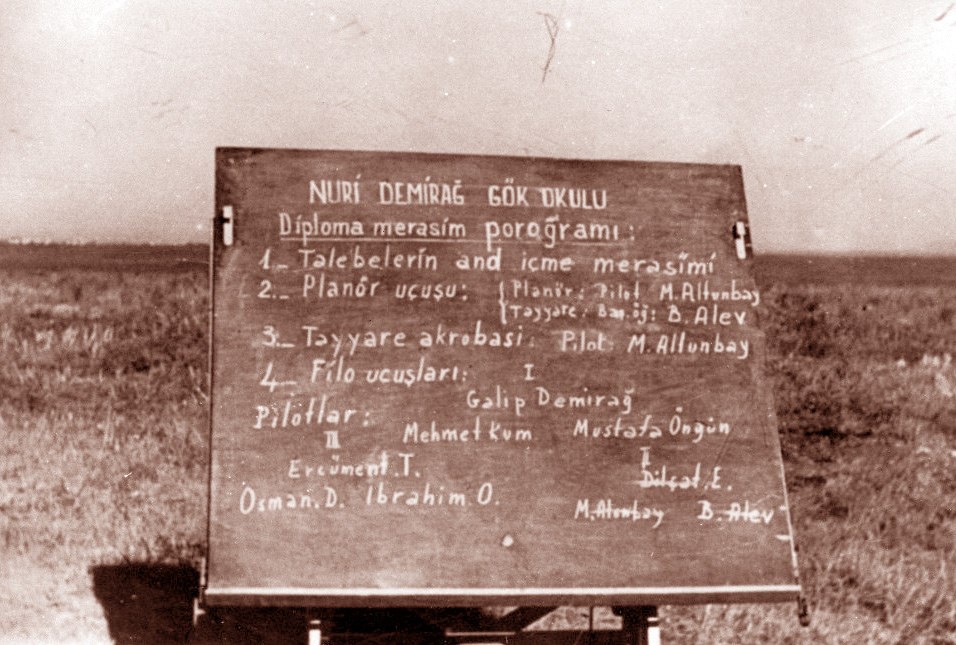 NURİ DEMİRAĞ GÖK OKULU
Diploma merasim poroğramı:
1_ Talebelerin and icme merasimi
2._ Planör uçuşu: Planör: Pilot M. Altunbay
Tayyare: Baş.öğ: B. Alev
3._ Tayyare akrobasi: Pilot: M. Altunbay
4_ Filo ucuşları: I
Galip Demirağ
Pilotlar: Mehmet Kum Mustafa Öngün
III II
Ercüment.T. Dilçat.E.
Osman.D. Ibrahim O. M.Atunbay B. Alev